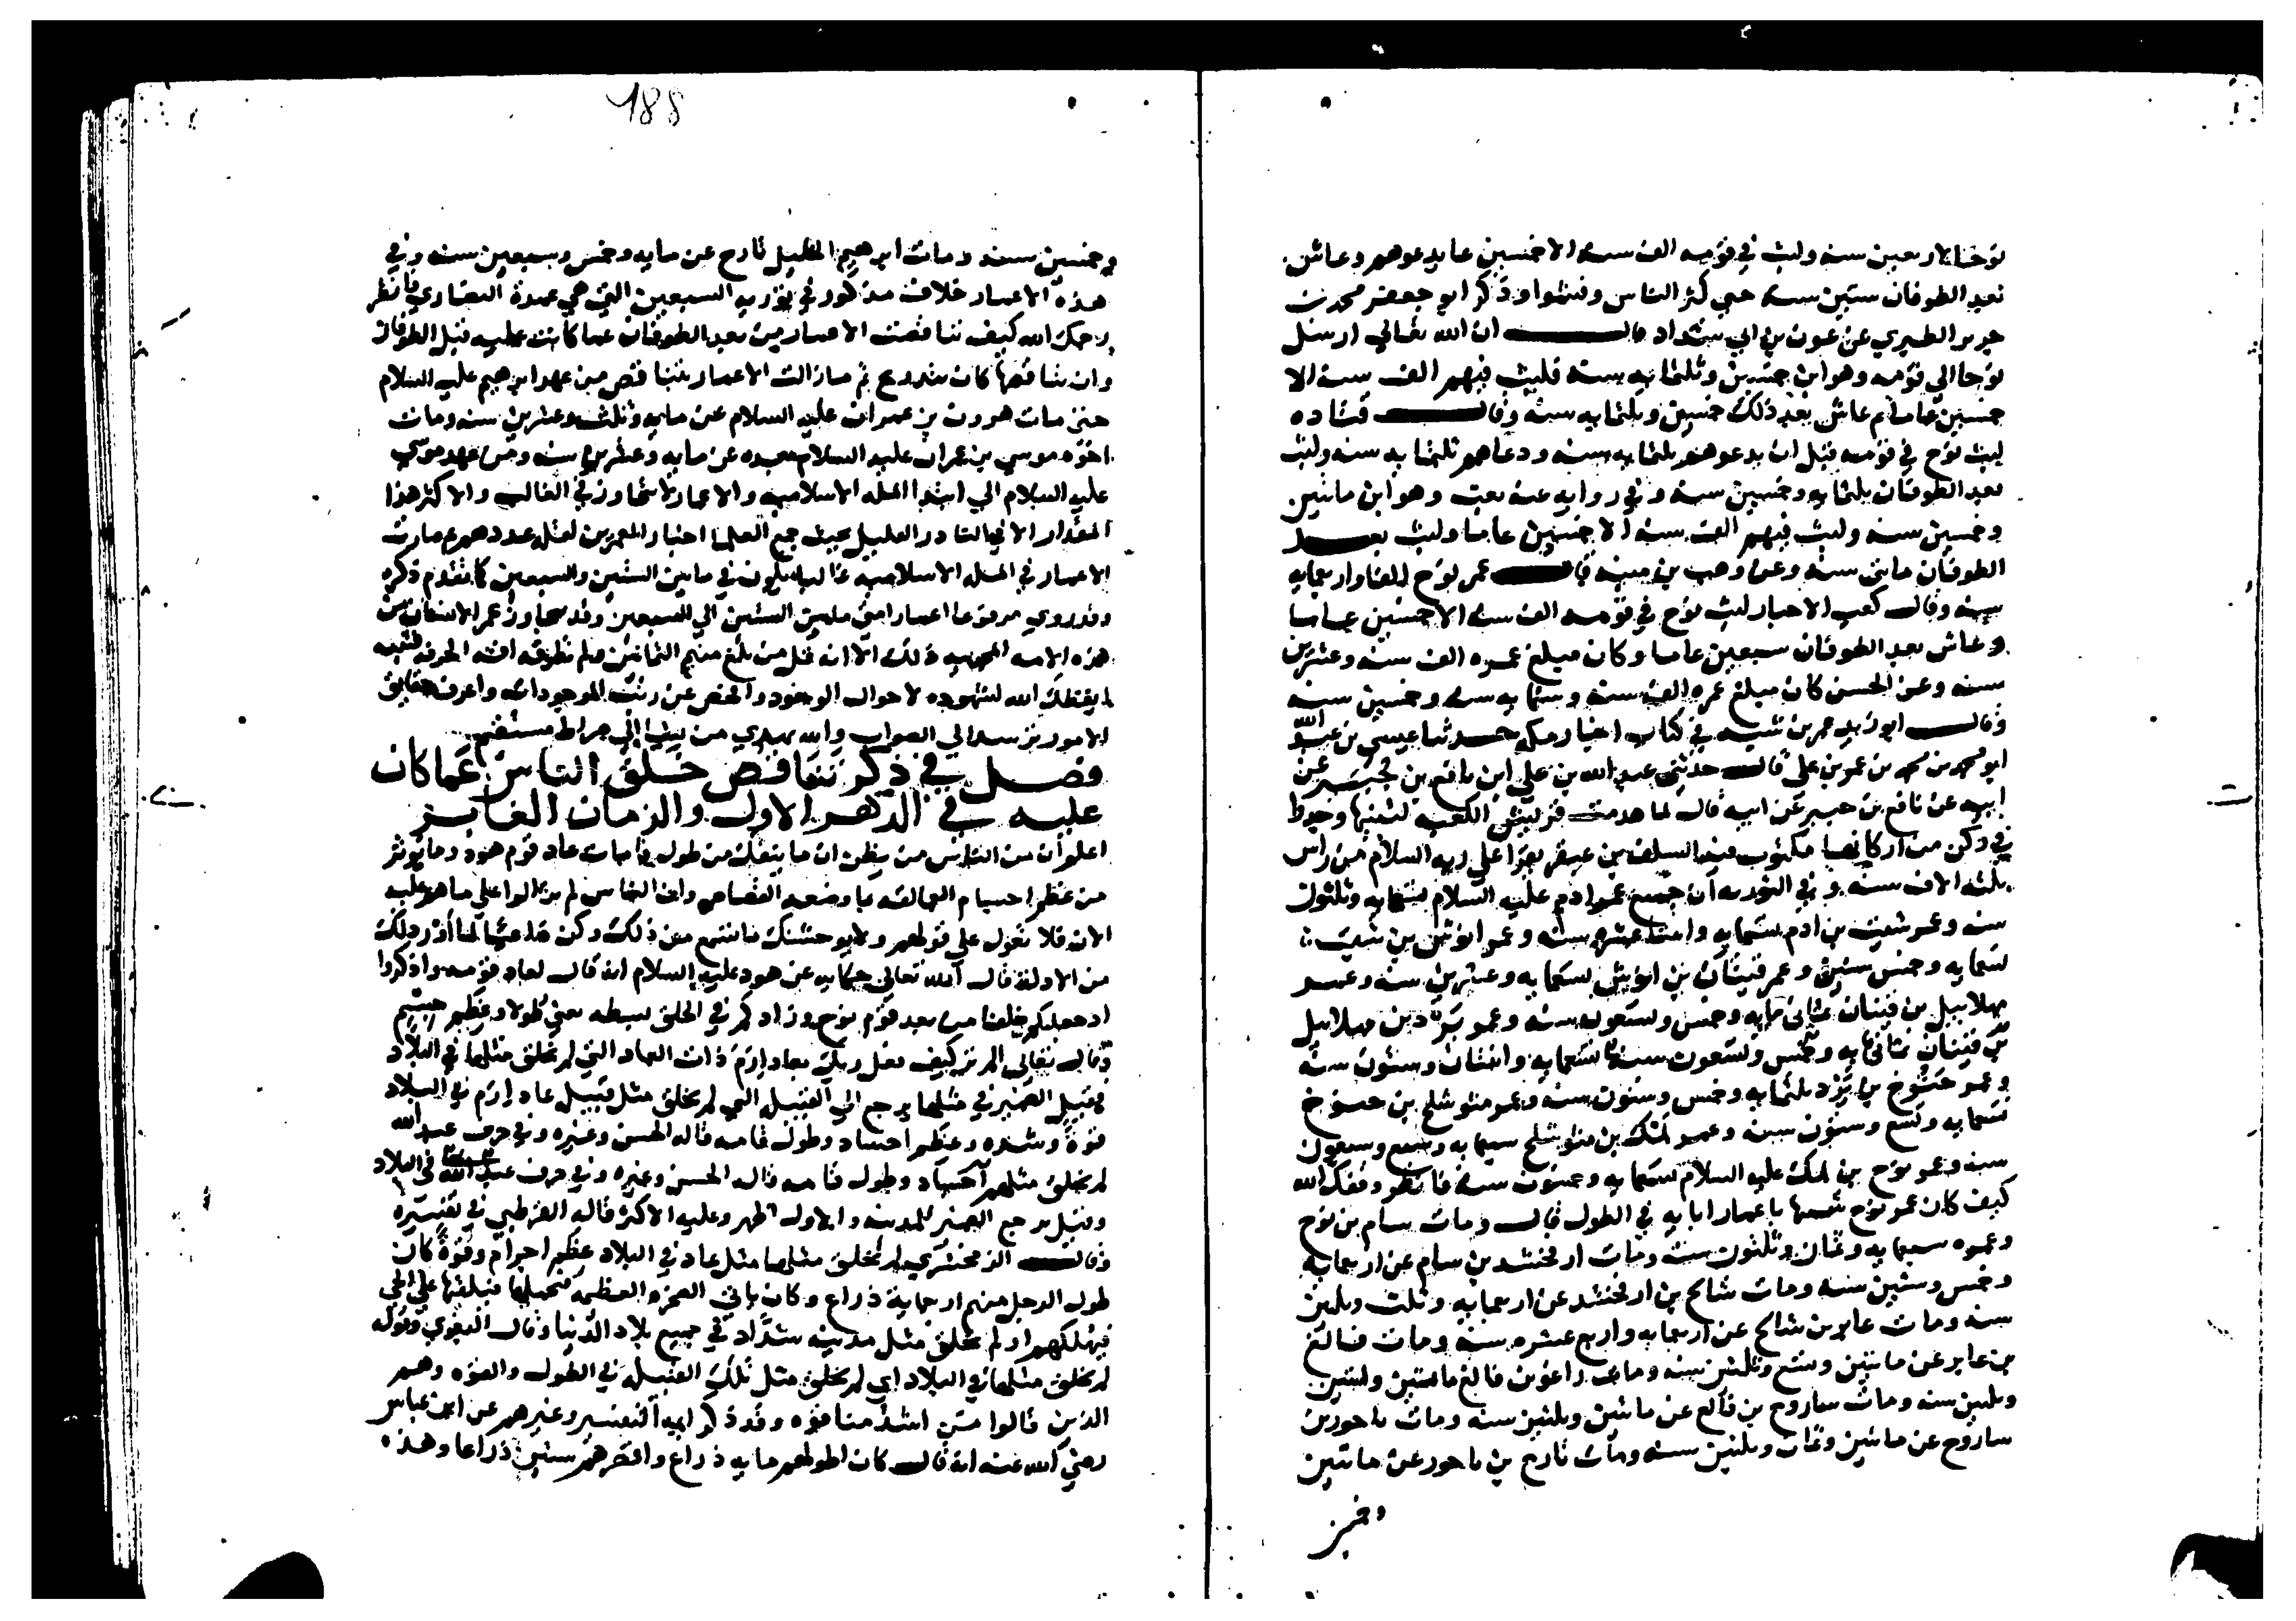 نوحا لاربعين سنه ولبث في قومه الف سنه الا خمسين عاما يدعوهم وعاش
بعد الطوفان ستين سنه حتى كثر الناس وفشوا وذكر ابو جعفر محمد بن
جرير الطبري عن عون بن ابي شداد قال ان الله تعالى ارسل
نوحا الي قومه وهو ابن خمسين وثلثمايه سنة فلبث فيهم الف سنه الا
خمسين عاما ثم عاش بعد ذلك خمسين وثلثمايه سنه وقال قتاده
لبث نوح في قومه قبل ان يدعوهم ثلثمايه سنه ودعاهم ثلثمايه سنه ولبث
بعد الطوفان ثلثمايه وخمسين سنه وفي روايه عنه بعث وهو ابن مائتين
وخمسين سنه ولبث فيهم الف سنه الا خمسين عاما ولبث بعد
الطوفان مائتي سنه وعن وهب بن منبه قال عمر نوح الفا واربعمايه
سنه وقال كعب الاحبار لبث نوح في قومه الف سنه الا خمسين عاما
وعاش بعد الطوفان سبعين عاما وكان مبلغ عمره الف سنه وعشرين
سنه وعن الحسن كان مبلغ عمره الف سنه وستمايه سنه وخمسين سنه
وقال ابو زيد عمر بن شبه في كتاب اخبار مكه حدثنا عيسي بن عبد الله
ابو محمد بن محمد بن عمر بن علي قال حدثني عبد الله بن علي ابن نافع بن جبير عن
ابيه عن نافع بن جبير عن ابيه قال لما هدمت قريش الكعبه لتبنيها وجد
في ركن من اركانها مكتوب فيه السلف بن عبقر يقرا علي ربه السلام من راس
ثلثه الاف سنه وفي التوريه ان جميع عمر ادم عليه السلام تسعمايه وثلثون
سنه وعمر شيث بن ادم تسعمايه واثنتا عشره سنه وعمر انوش بن شيث
تسعمايه وخمس سنين وعمر قينان بن انوش تسعمايه وعشرين سنه وعمر
مهلاييل بن قينان ثماني مايه وخمس وتسعون سنه وعمر يرد بن مهلاييل
بن قينان ثمانمايه وخمس وتسعون سنه تسعمايه واثنتان وستون سنة
وعمر خنوخ بن يرد ثلثمايه وخمس وستون سنه وعمر متوشلح بن خنوخ
تسعمايه وتسع وستون سنه وعمر لمك بن متوشلح سبعمايه وسبع وسبعون
سنه وعمر نوح بن لمك عليه السلام تسعمايه وخمسون سنه فانظر وفقك الله
كيف كان عمر نوح شبيها باعمار ابايه في الطول قال ومات سام بن نوح
وعمره سبعمايه وثمان وثلثون سنه ومات ارفخشد بن سام عن اربعمايه
وخمس وستين سنه ومات شالخ بن ارفخشد عن اربعمايه وثلث وثلثين
سنه ومات عابر بن شالخ عن اربعمايه واربع عشره سنه ومات فالغ
بن عابر عن مائتين وتسع وثلثين سنه ومات راغو بن فالغ مائتين واثنتين
وثلثين سنه ومات ساروح بن فالغ عن مائتين وثلثين سنه ومات ناحور بن
ساروح عن مائتين وثمان وثلثين سنه ومات تارح بن ناحور عن مائتين
وخمسين
188
وخمسين سنه ومات ابرهيم الخليل تارح عن مايه وخمس وسبعين سنه وفي
هذه الاعمار خلاف مذكور في توريه السبعين التي هي عمدة النصاري فانظر
رحمك الله كيف تناقصت الاعمار من بعد الطوفان عما كانت عليه قبل الطوفان
وان تناقصها كان بتدريج ثم مازالت الاعمار تتناقص من عهد ابرهيم عليه السلام
حتى مات هرون بن عمران عليه السلام عن مايه وثلث وعشرين سنه ومات
اخوه موسي بن عمران عليه السلام بعده عن مايه وعشرين سنه ومن عهد موسي
عليه السلام الي ابتدا المله الاسلاميه والاعمار لا تتجاوز في الغالب والاكثر هذا
المقدار الا في النادر القليل بحيث جمع العلما اخبار المعمرين لقله عددهم ثم صارت
الاعمار في المله الاسلاميه غالبا تكون في ما بين الستين والسبعين كما تقدم ذكره
وقد روي مرفوعا اعمار امتي ما بين الستين الي السبعين وقد يتجاوز عمر الانسان من
هذه الامه المحمديه ذلك الا انه قل من بلغ منهم الثمانين ولم تطرقه افة الخرف فتنبه
ايقظك الله لشهوده لاحوال الوجود والفحص عن رتب الموجودات واعرف حقايق
الامور ترشد الي الصواب والله يهدي من يشا الي صراط مستقيم
فصل في ذكر تناقص خلق الناس عما كان
عليه في الدهر الاول والزمان الغابر
اعلم ان من الناس من يظن ان ما ينقل من طول قامات عاد قوم هود وما يوثر
من عظم اجسام العمالقه مما وضعه القصاص وان الناس لم يزالوا علي ما هم عليه
الان فلا تعول علي قولهم ولا يوحشنك ما تسمع من ذلك وكن متبعا لما اورد لك
من الادلة قال الله تعالى حكايه عن هود عليه السلام انه قال لعاد قومه واذكروا
اذ جعلكم خلفا من بعد قوم نوح وزادكم في الخلق بسطه يعني طولا وعظم جسم
وقال تعالى الم تر كيف فعل ربك بعاد ارم ذات العماد التي لم يخلق مثلها في البلاد
فقيل الضمير في مثلها يرجع الي القبيله التي لم يخلق مثل قبيل عاد ارم في البلاد
قوة وشده وعظم اجساد وطول قامه قاله الحسن وغيره وفي حرف عبد الله
لم يخلق مثلهم اجساد وطول قامه قاله الحسن وغيره وفي حرف عبد الله في البلاد
وقيل يرجع الضمير للمدينه والاول اظهر وعليه الاكثر قاله القرطبي في تفسيره
وقال الزمخشري لم يخلق مثلها مثل عاد في البلاد عظم اجرام وقوة كان
طول الرجل منهم اربعماية ذراع وكان ياتي الصخره العظيمه فيحملها فيلقيها علي الحي
فيهلكهم او لم يخلق مثل مدينة شداد في جميع بلاد الدنيا وقال البغوي وقوله
لم يخلق مثلها في البلاد اي لم يخلق مثل تلك القبيله في الطول والقوه وهم
الذين قالوا من اشد منا قوه وقد ذكر ايمة التفسير وغيرهم عن ابن عباس
رضي الله عنه انه قال كان اطولهم مايه ذراع واقصرهم ستين ذراعا وهذه